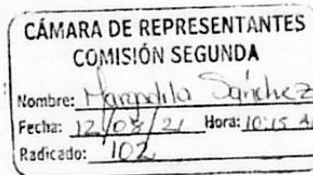 CÁMARA DE REPRESENTANTES
COMISIÓN SEGUNDA
Nombre: Margalita Sánchez
Fecha: 12/08/21 Hora: 10:15 A
Radicado: 102